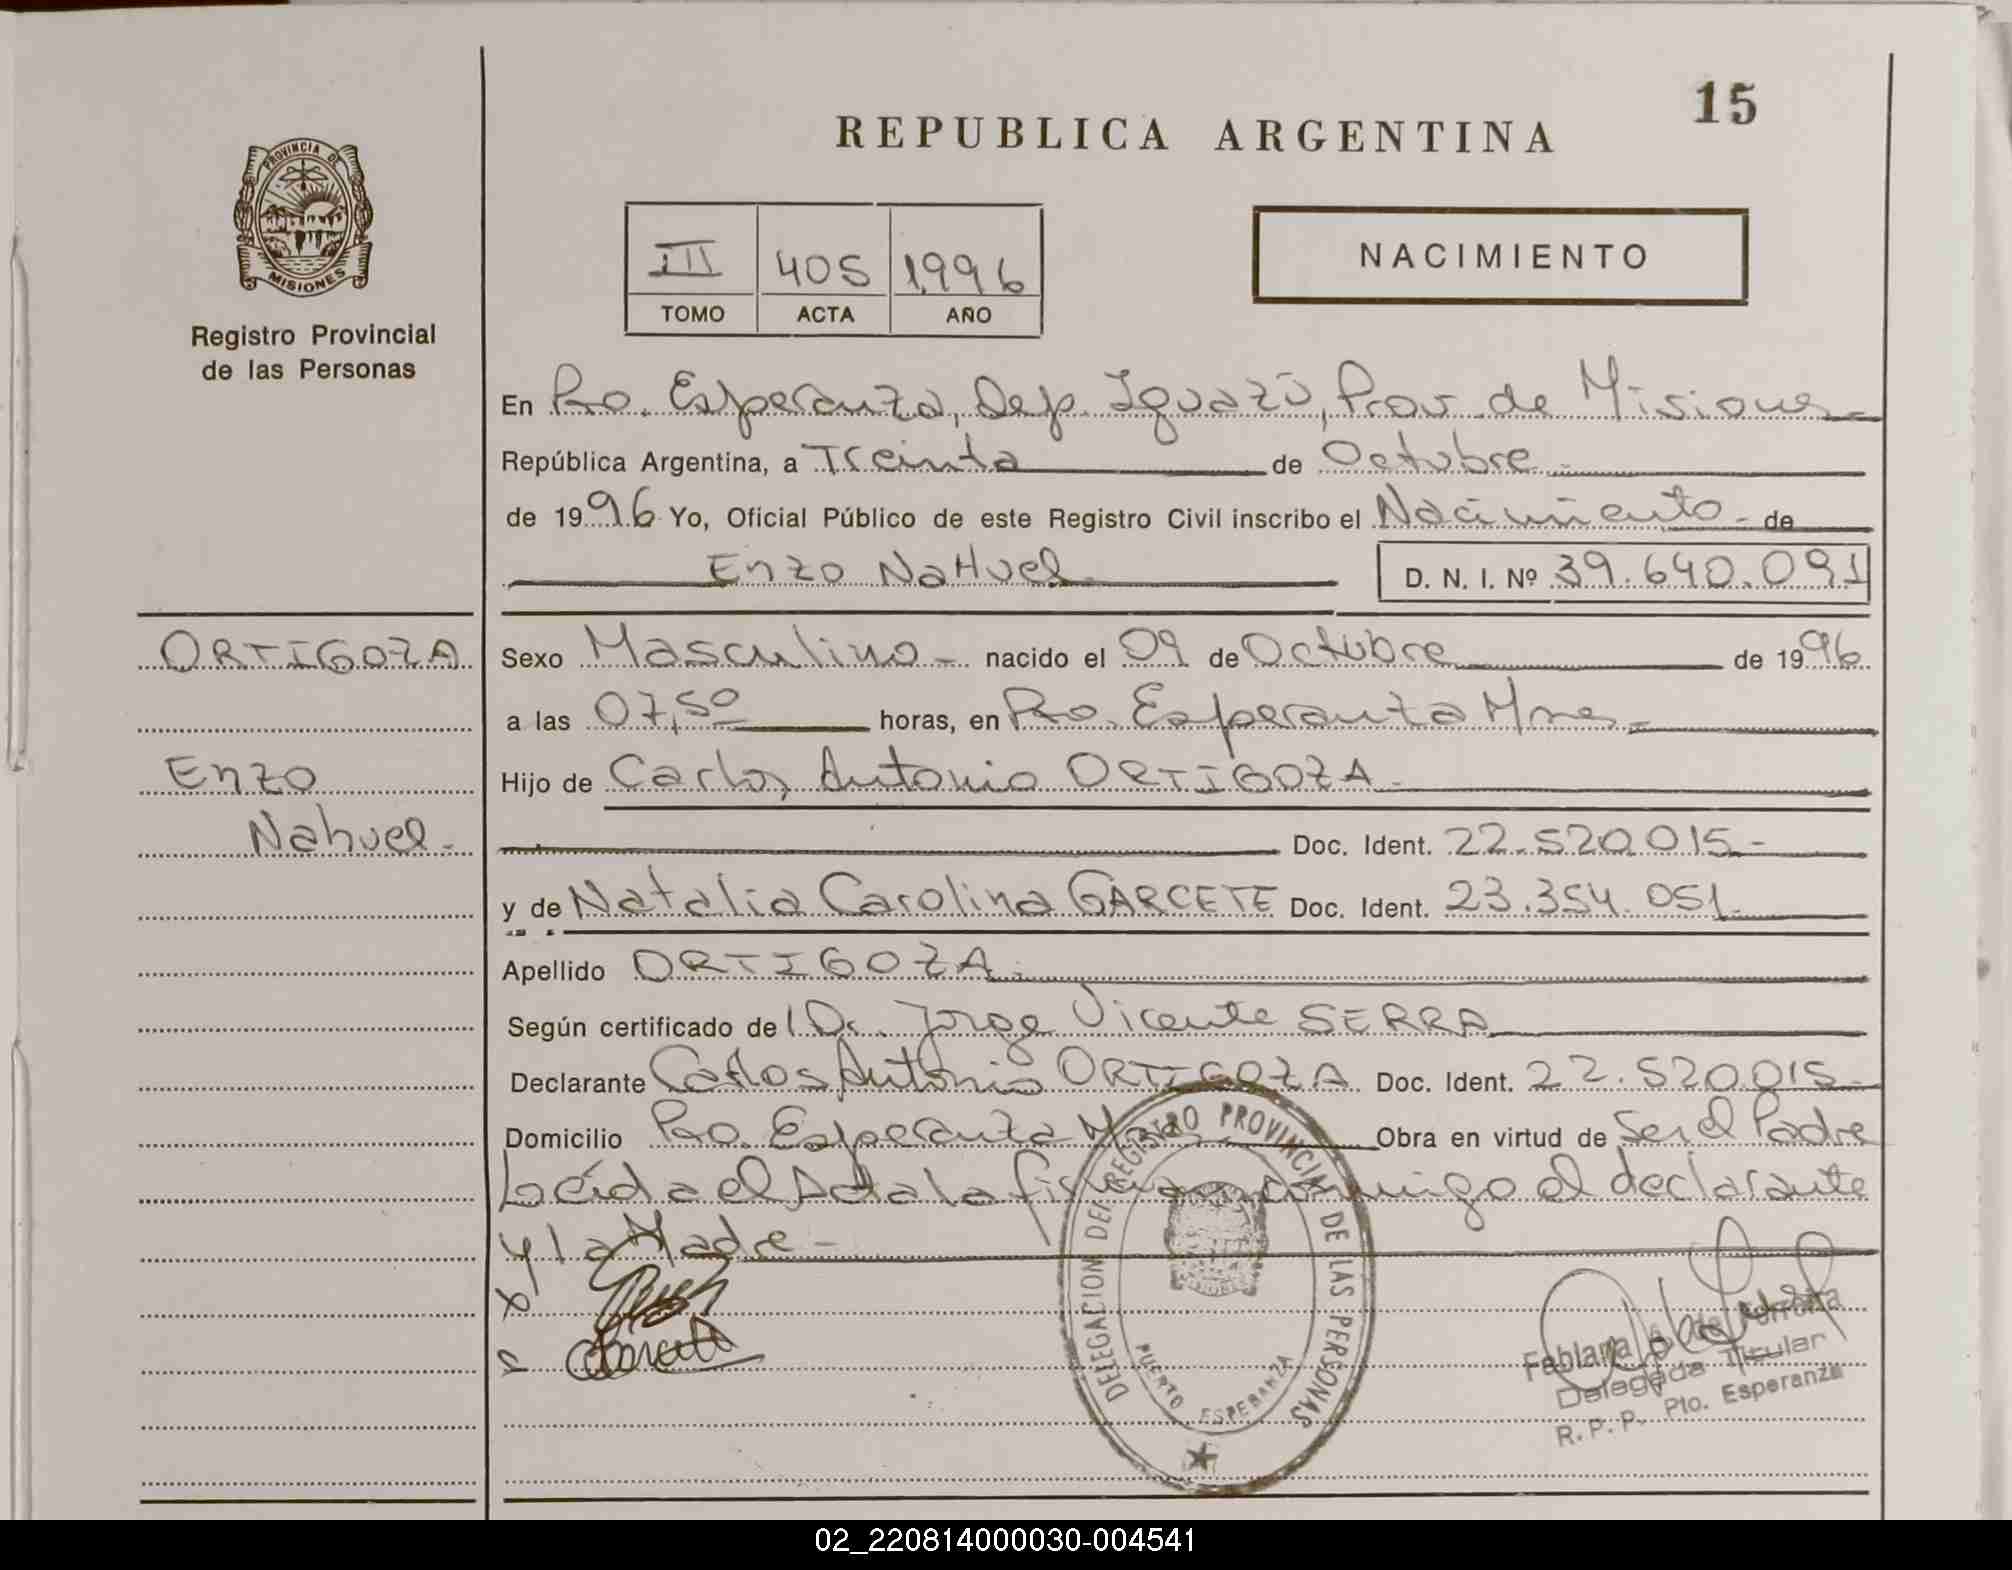 15
REPUBLICA ARGENTINA
PROVINCIA DE
MISIONES
Registro Provincial
de las Personas
III 405 1.996
TOMO ACTA AÑO
NACIMIENTO
En Pto. Esperanza, Dep. Iguazú, Prov. de Misiones-
República Argentina, a Treinta de Octubre-
de 1996 Yo, Oficial Público de este Registro Civil inscribo el Nacimiento- de
Enzo NaHuel- D. N. I. Nº 39.640.091
ORTIGOZA
Enzo
Nahuel.-
Sexo Masculino- nacido el 09 de Octubre de 1996
a las 07,50 horas, en Pto. Esperanza Mnes-
Hijo de Carlos Antonio ORTIGOZA-
Doc. Ident. 22.520.015-
y de Natalia Carolina GARCETE Doc. Ident. 23.354.051-
Apellido ORTIGOZA.-
Según certificado de l Dr. Jorge Vicente SERRA
Declarante Carlos Antonio ORTIGOZA Doc. Ident. 22.520.015-
Domicilio Pto. Esperanza Mnes Obra en virtud de Ser el Padre
Leída el Acta la firman conmigo el declarante
y la Madre-
DELEGACION DEL REGISTRO PROVINCIAL DE LAS PERSONAS
PUERTO ESPERANZA
Fabiana de Ferreira
Delegada Titular
R. P. P. Pto. Esperanza
02_220814000030-004541